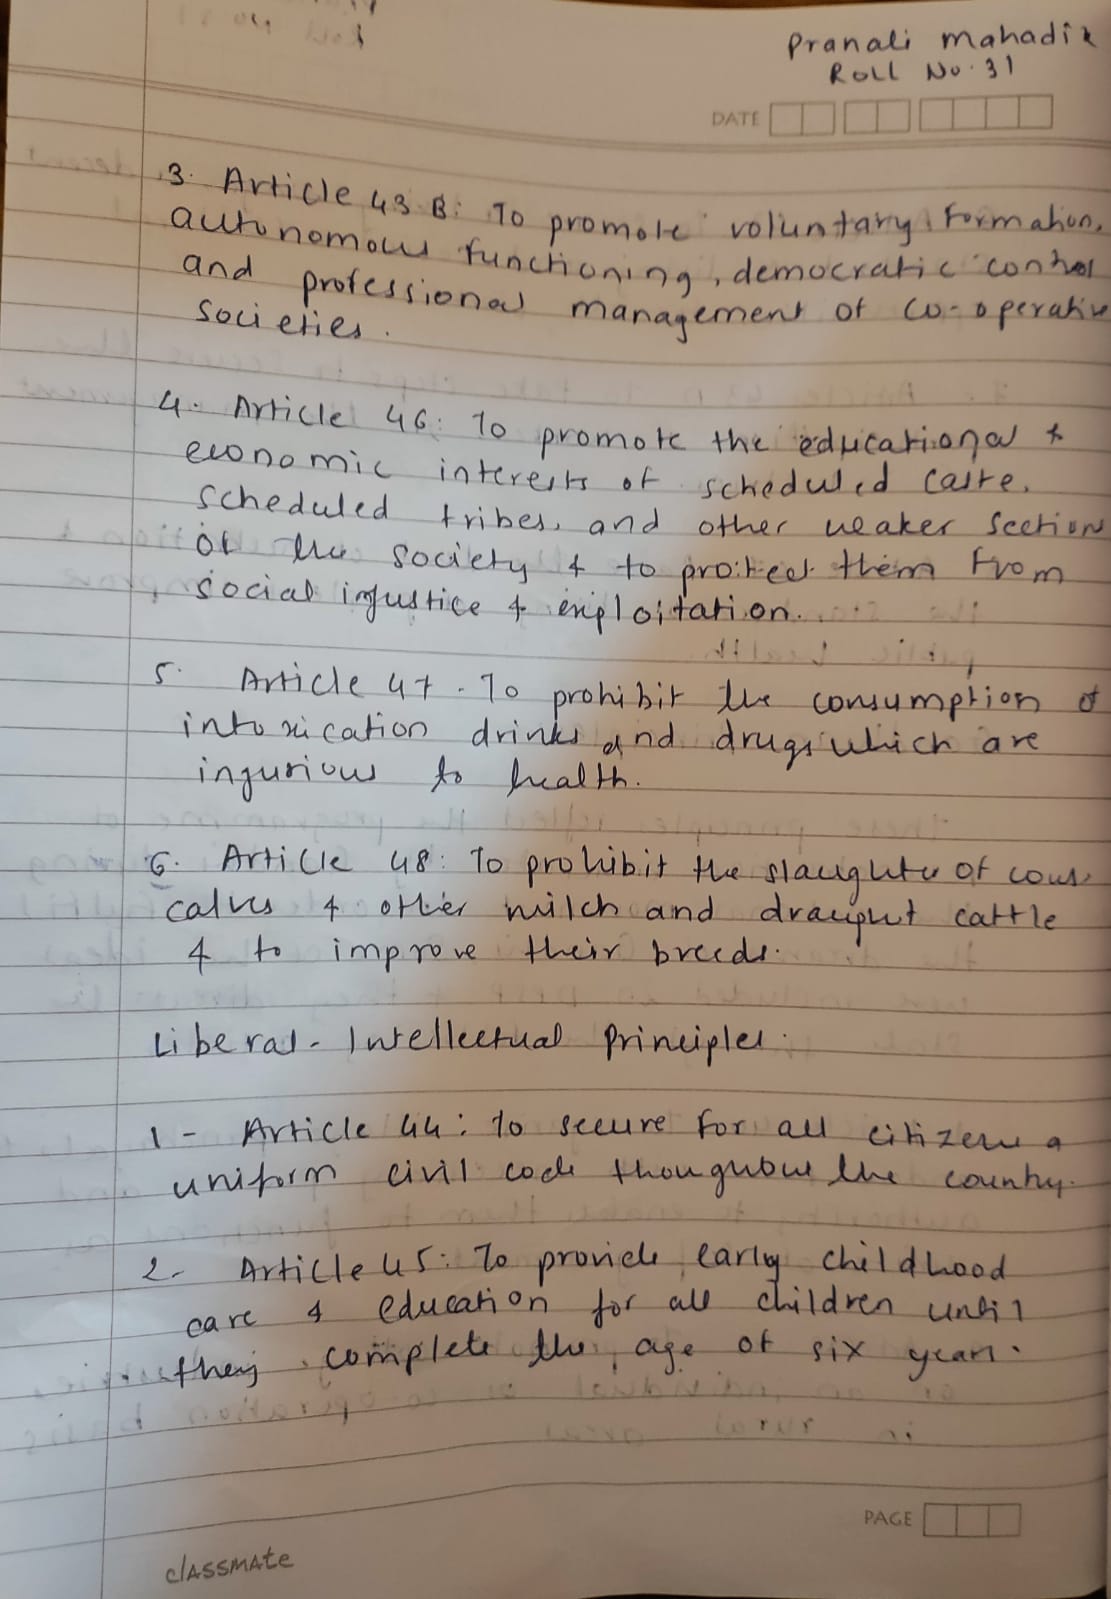 Pranali Mahadik
Roll No. 31
DATE
3. Article 43 B: To promote voluntary formation,
autonomous functioning, democratic control
and professional management of co-operative
societies.
4. Article 46: To promote the educational &
economic interests of scheduled caste,
scheduled tribes, and other weaker section
of the society & to protect them from
social injustice & exploitation.
5. Article 47 - To prohibit the consumption of
intoxication drinks and drugs which are
ingurious to health.
6. Article 48: To prohibit the slaughter of cows
calves & other milch and draught cattle
& to improve their breeds.
Liberal - Intellectual Principles.
1 - Article 44: To secure for all citizens a
uniform civil code thoughout the country.
2 - Article 45: To provide early childhood
care & education for all children until
they complete the age of six years.
PAGE
classmate